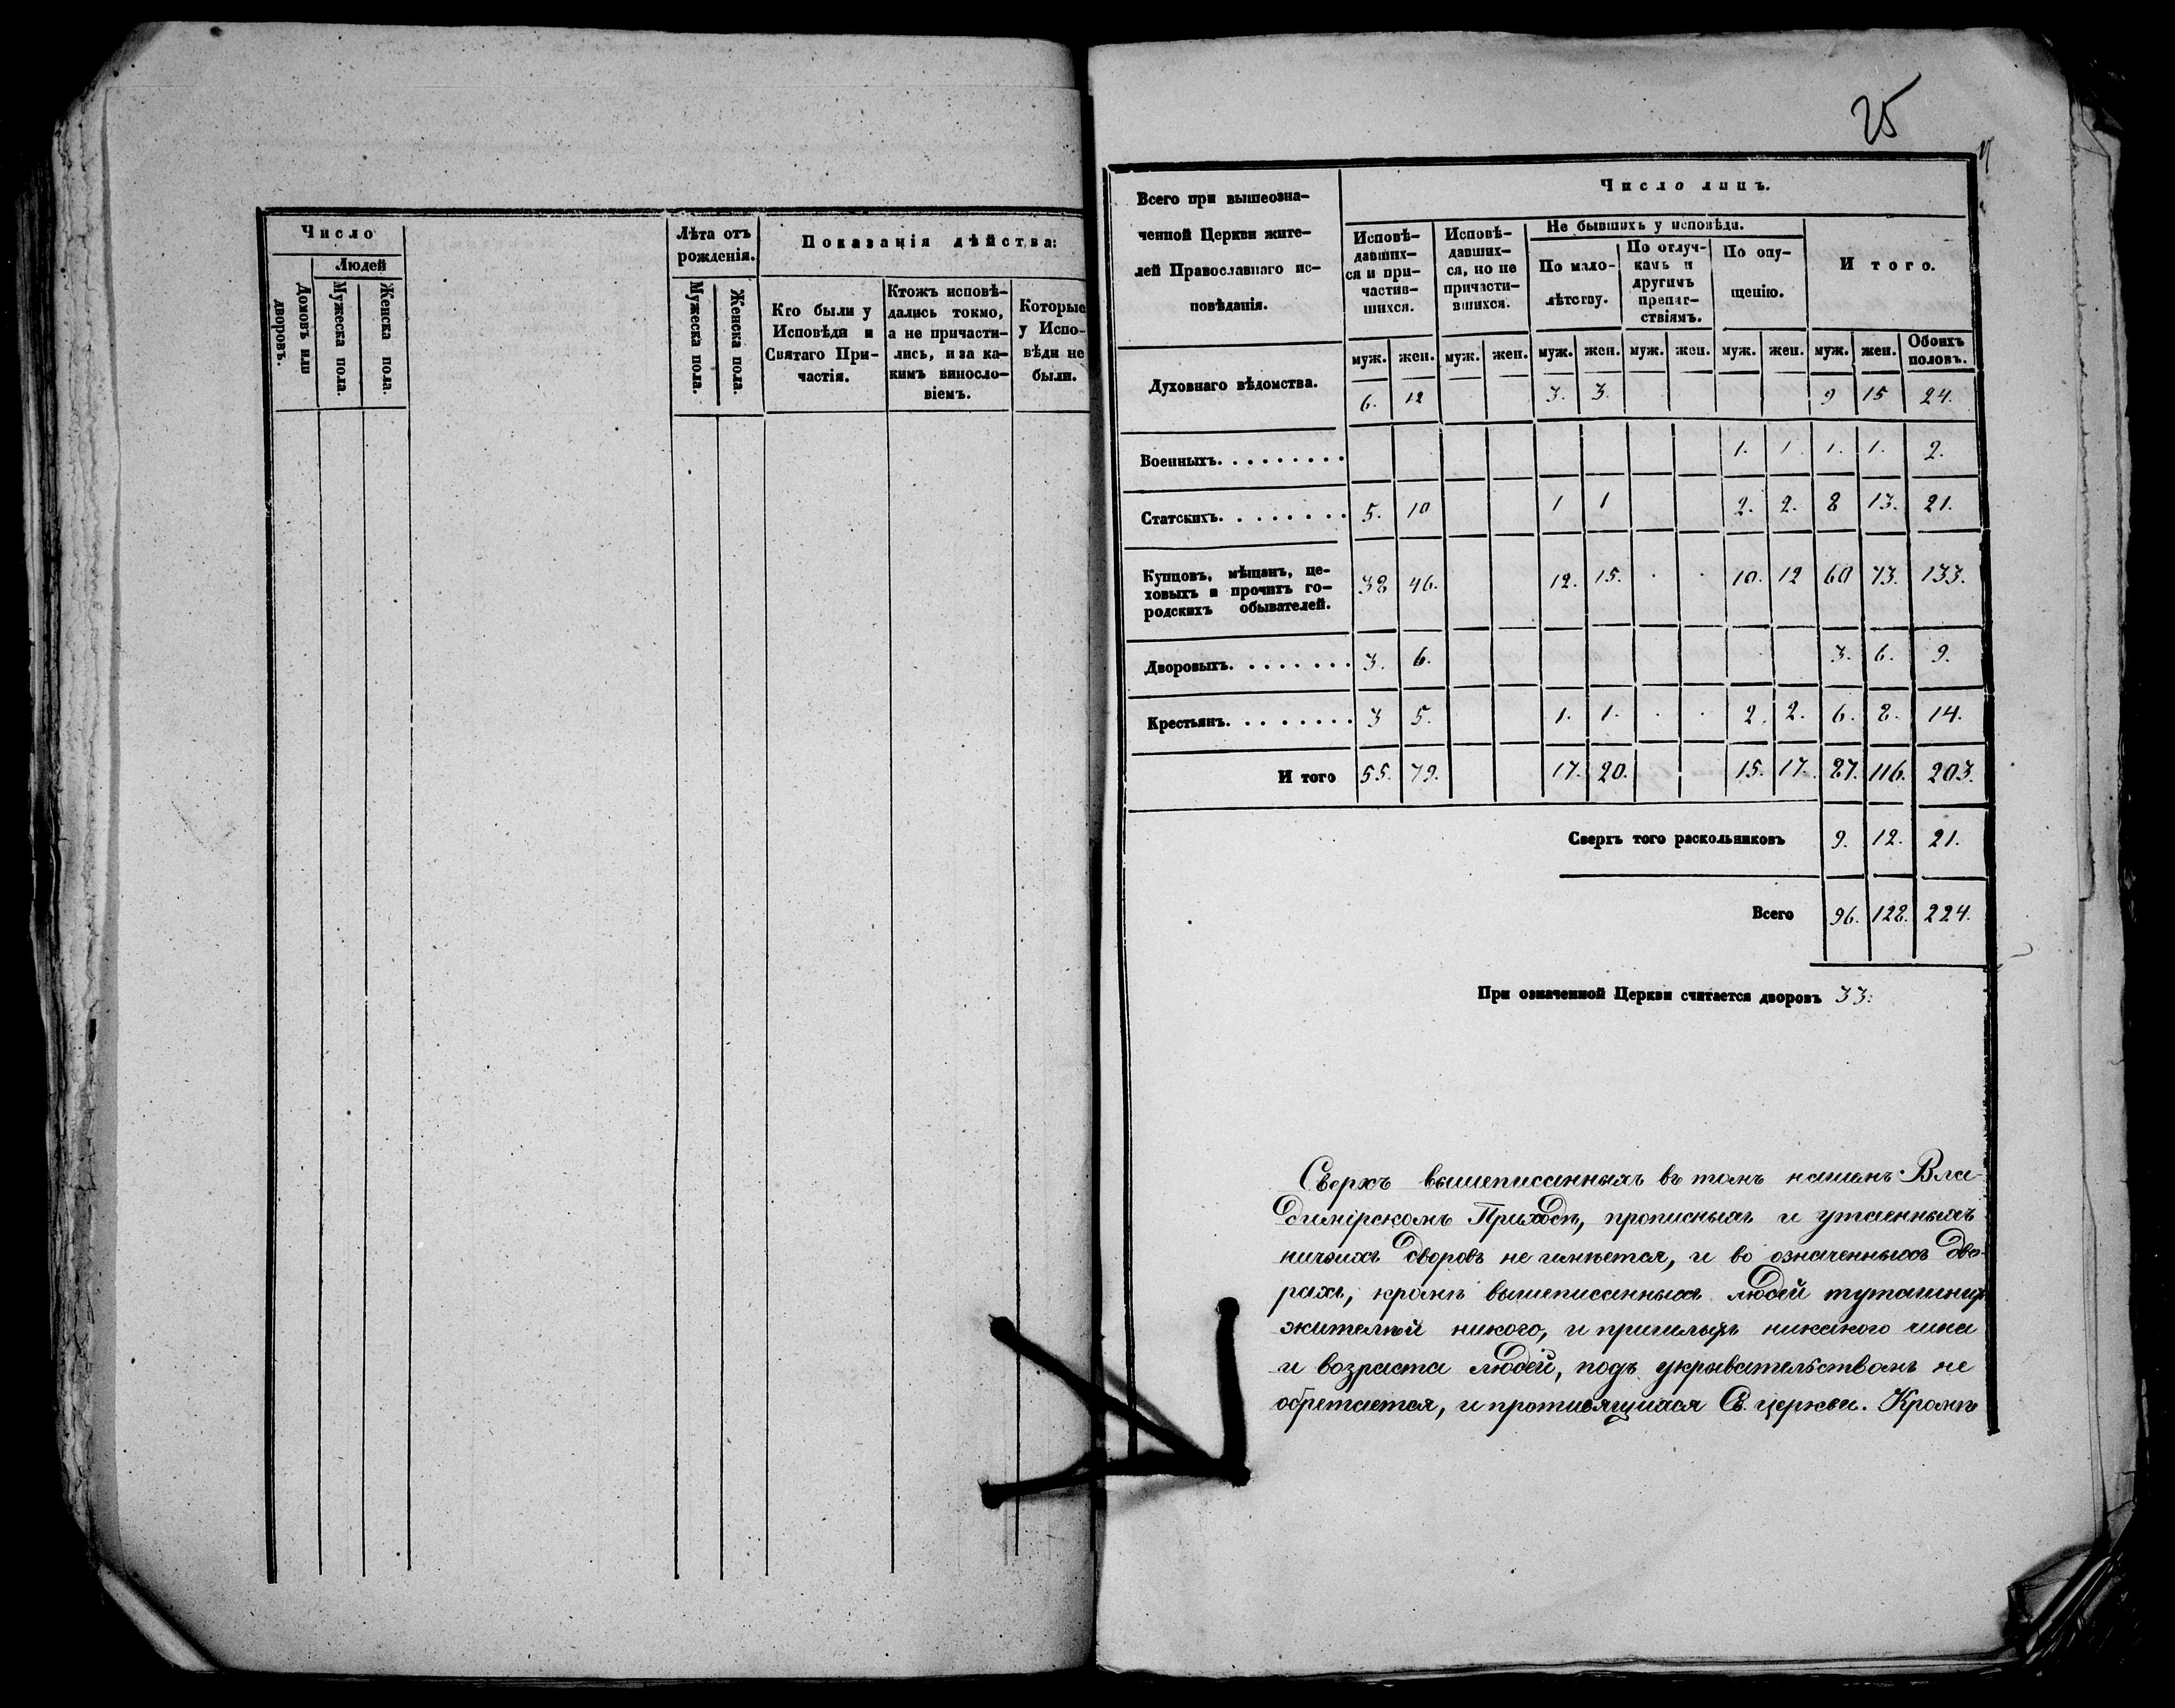 Число
Людей
Домовъ или дворовъ.
Мужеска пола.
Женска пола.
Лѣта отъ рожденія.
Мужеска пола.
Женска пола.
Показанія дѣйства:
Кто были у
Исповѣди и
Святаго При-
частія.
Ктожъ исповѣ-
дались токмо,
а не причасти-
лись, и за ка-
кимъ виносло-
віемъ.
Которые
у Испо-
вѣди не
были.
25
Всего при вышеозна-
ченной Церкви жите-
лей Православнаго ис-
повѣданія.
Число лицъ.
Исповѣ-
давших-
ся и при-
частив-
шихся.
Исповѣ-
давших-
ся, но не
причасти-
вшихся.
Не бывшихъ у исповѣди.
По мало-
лѣтству.
По отлуч-
камъ и
другимъ
препят-
ствіямъ.
По опу-
щенію.
Итого.
муж. жен. муж. жен. муж. жен. муж. жен. муж. жен. муж. жен. Обоихъ половъ.
Духовнаго вѣдомства. 6. 12 3. 3. 9 15 24.
Военныхъ. . . . . . . . . 1. 1. 1. 1. 2.
Статскихъ. . . . . . . . 5. 10 1 1 2. 2. 8 13. 21.
Купцовъ, мѣщанъ, це-
ховыхъ и прочихъ го-
родскихъ обывателей.
38 46. 12. 15. 10. 12 60 73. 133.
Дворовыхъ. . . . . . . . 3. 6. 3. 6. 9.
Крестьянъ. . . . . . . . 3 5. 1. 1. 2. 2. 6. 8. 14.
И того 55. 79. 17. 20. 15. 17. 87. 116. 203.
Сверхъ того раскольниковъ 9. 12. 21.
Всего 96. 128. 224.
При означенной Церкви считается дворовъ 33.
Сверхъ вышеписанныхъ въ томъ нашемъ Вла-
димірскомъ Приходѣ, прописныхъ и утаенныхъ
ничьихъ дворовъ не имѣется, и во означенныхъ дво-
рахъ, кромѣ вышеписанныхъ людей тутошних
жителѣй никого, и пришлыхъ никакого чина
и возраста людей, подъ укрывательствомъ не
обретается, и противящихся Св. церкви. Кромѣ